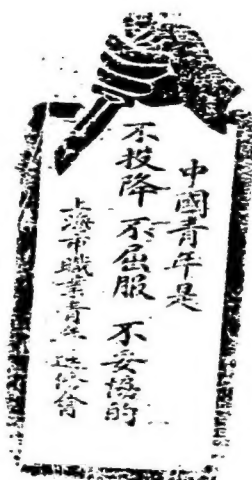 中國青年是
不投降 不屈服 不妥協的
上海市職業青年